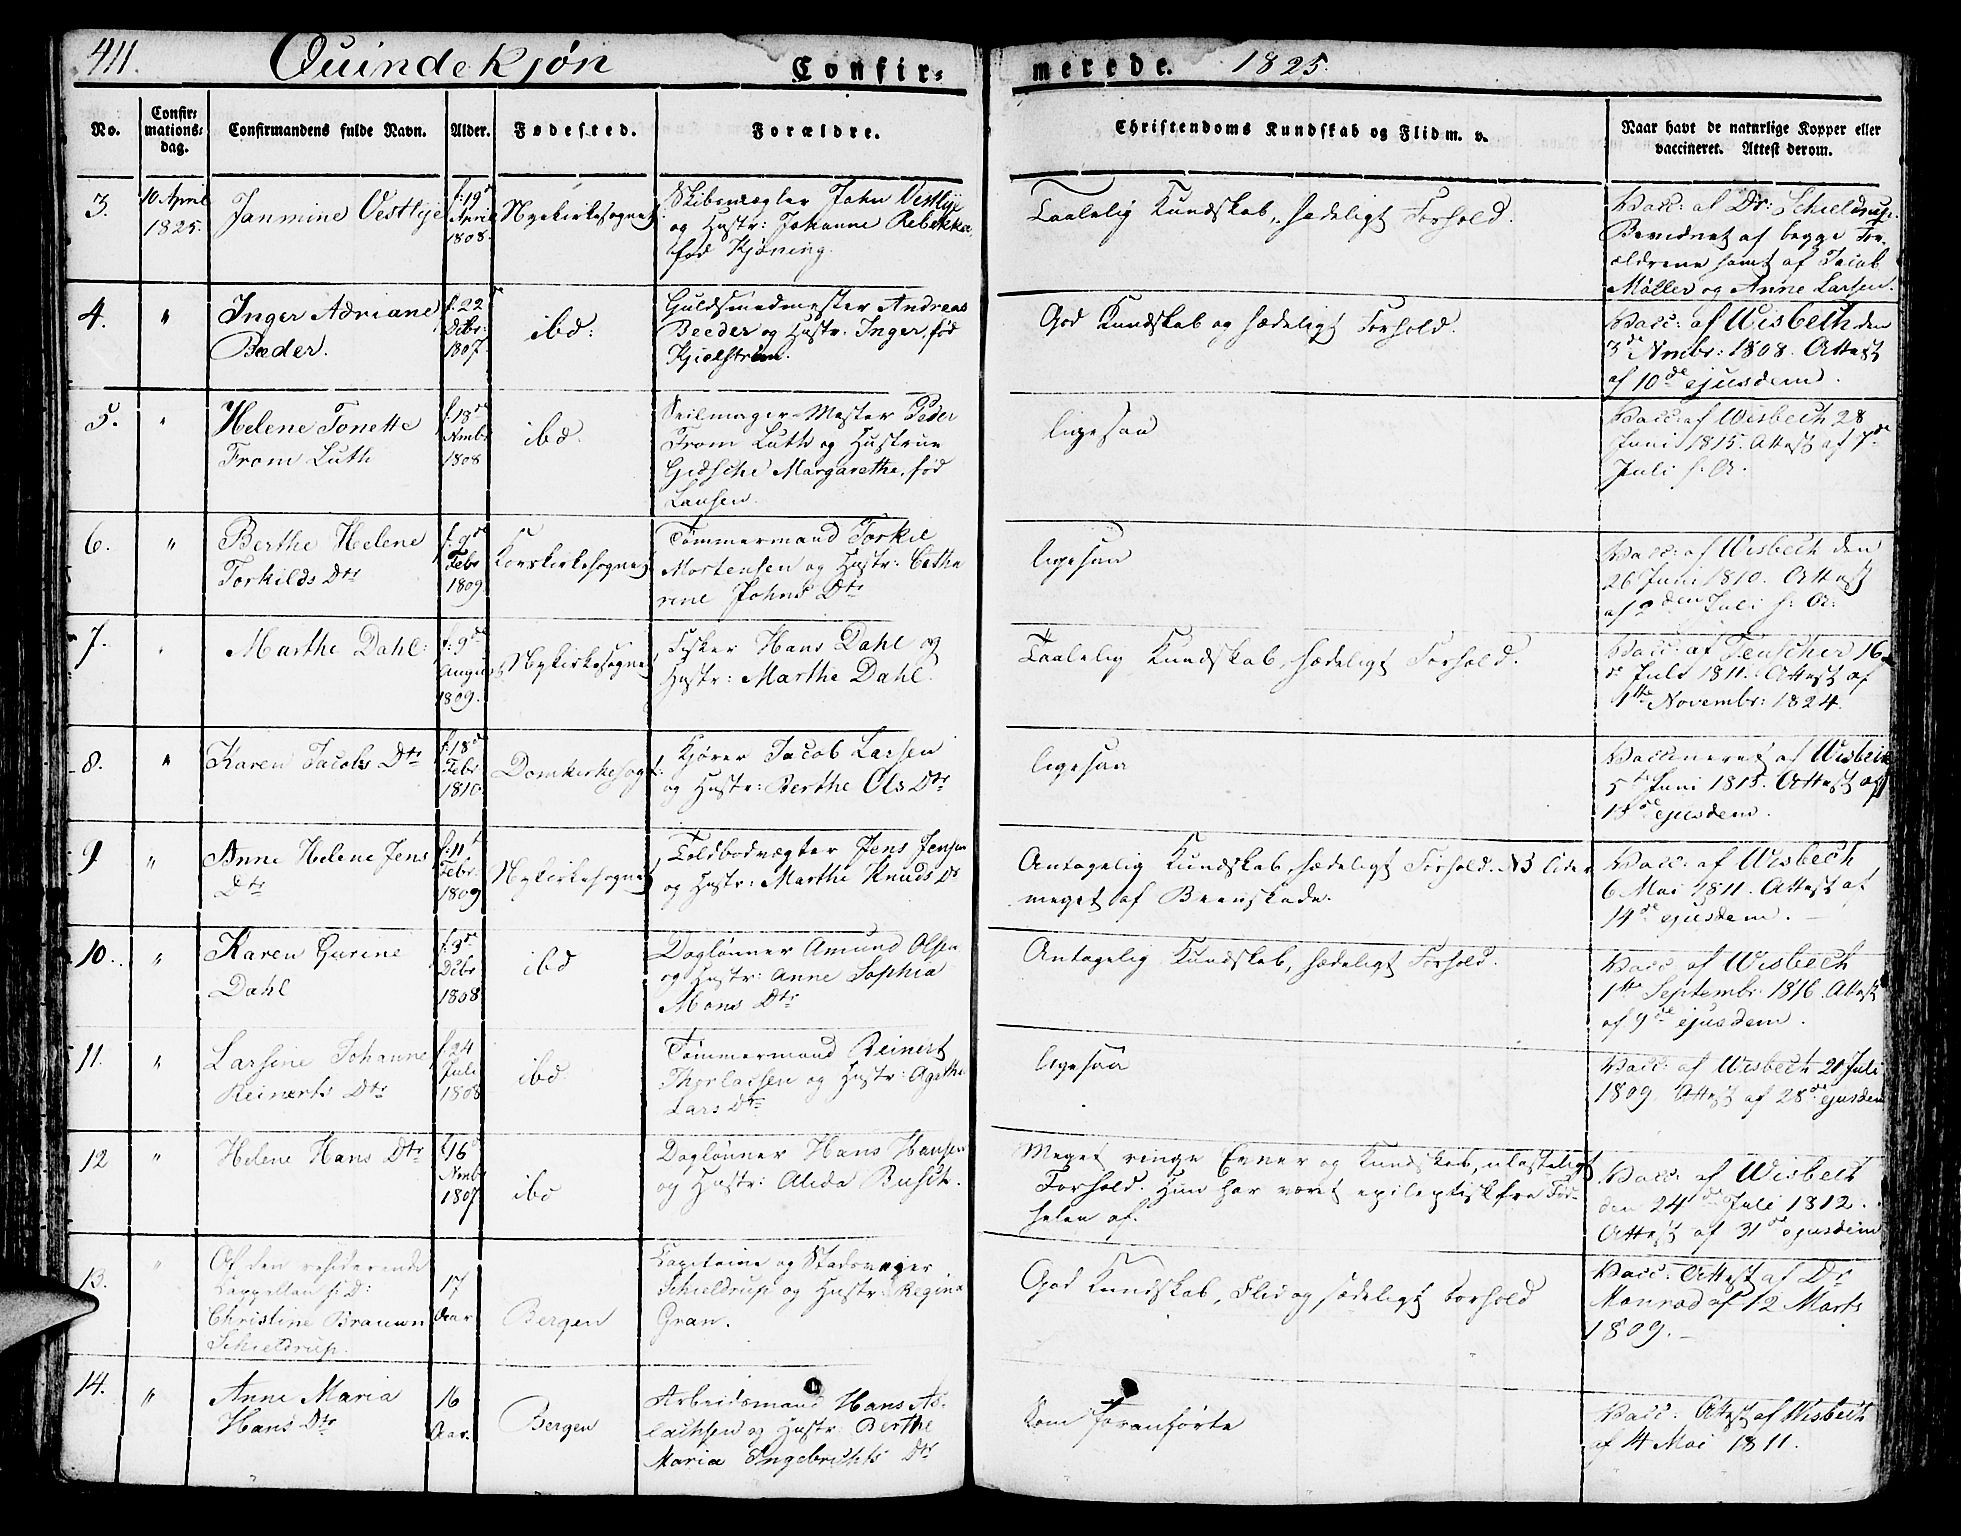 411.
Quindekjøn
Confir-
merede.
1825.
No.
Confir-
mations-
dag.
Confirmandens fulde Navn.
Alder.
Fødested.
Forældre.
Christendoms Kundskab og Flid m. v.
Naar havt de naturlige Kopper eller
vaccineret. Attest derom.
3.
10 April
1825.
Janmine Vestlye
f: 19de
April
1808.
Nyekirkesognet
Skibsmægler John Vestlye
og Hustr: Johanne Rebekka,
fød Kjøning.
Taalelig Kundskab, sædeligt Forhold.
Vacc: af Dr: Schieldrup.
Bevidnet af begge For-
ældrene samt af Jacob
Møller og Anne Larsen.
4.
"
Inger Adriane
Beeder.
f: 22de
Dcbr:
1807.
ibd:
Guldsmedmester Andreas
Beeder og Hustr: Inger, fød
Kjielstrøm.
God Kundskab og sædeligt Forhold.
Vacc: af Wisbech den
3de Nmbr: 1808. Attest
af 10de ejusdem.
5.
"
Helene Tonette
From Luth
f: 18de
Nmbr
1808
ibd.
Seilmager-Mester Peder
From Luth og Hustrue
Gidsche Margarethe, fød
Lausen.
ligesaa
Vacc: af Wisbech 28
Juni 1815. Attest af 7de
Juli s: A.
6.
"
Berthe Helene
Torkilds Dtr
f: 9de
Febr
1809
Korskirkesognet
Tømmermand Torkil
Mortensen og Hustr: Cathe
rine Johns Dtr
ligesaa
Vacc: af Wisbech den
26 Juni 1810. Attest
af den Juli s: A:
7.
"
Marthe Dahl:
f: 9de
August
1809.
Nykirkesognet
Fisker Hans Dahl og
Hustr: Marthe Dahl.
Taalelig Kundskab, sædeligt Forhold.
Vacc: af Teuscher 16
de Juli 1811. Attest af
1ste Novembr: 1824.
8.
"
Karen Jacobs Dtr
f: 18de
Febr
1810
Domkirkesogt:
Kjører Jacob Larsen
og Hustr: Berthe Ols Dtr
ligesaa
Vaccineret af Wisbech
5te Juni 1815. Attest af
18de ejusdem.
9
"
Anne Helene Jens
Dtr
f: 11te
Febr.
1809
Nykirkesognet
Toldbodvægter Jens Jensen
og Hustr: Marthe Knuds Dr
Antagelig Kundskab, sædeligt Forhold. NB lider
meget af Beenskade.
Vacc: af Wisbech
6 Mai 1811. Attest af
14de ejusdem.
10.
"
Karen Gurine
Dahl
f: 3de
Dcbr
1808
ibd
Daglønner Amund Olsen
og Hustr: Anne Sophia
Mons Dtr
Antagelig Kundskab, sædeligt Forhold.
Vacc af Wisbech
1ste Septembr 1816. Attest
af 9de ejusdem.
11.
"
Larsine Johanne
Reinerts Dtr
f: 24
Juli
1808
ibd.
Tømmermand Reinert
Thorlacsen og Hustr: Agathe
Lars Dtr
ligesaa
Vacc: af Wisbech 20 Juli
1809. Attest af 28de ejusdem
12
"
Helene Hans Dtr
f: 16de
Nmb
1807
ibd
Daglønner Hans Hansen
og Hustr: Alida Busch.
Meget ringe Evner og Kundskab, ulasteligt
Forhold. Hun har været epileptisk fra Fød-
selen af.
Vacc: af Wisbech
den 24de Juli 1812.
Attest af 31de ejusdem
13.
"
Af den residerende
Cappellan s: D:
Christine Brauwn
Schieldrup.
17
Aar
Bergen
Capitaine og Stadsveier
Schieldrup og Hustr: Regina
Gran.
God Kundskab, Flid og sædeligt Forhold
Vacc: Attest af Dr
Monrad af 12 Marts
1809.
14.
"
Anne Maria
Hans Dtr
16
Aar.
Bergen
Arbeidsmand Hans As-
lachsen og Hustr: Berthe
Maria Ingebrichts Dtr
Som foranførte
Vacc: Attest af Wisbech
af 4 Mai 1811.